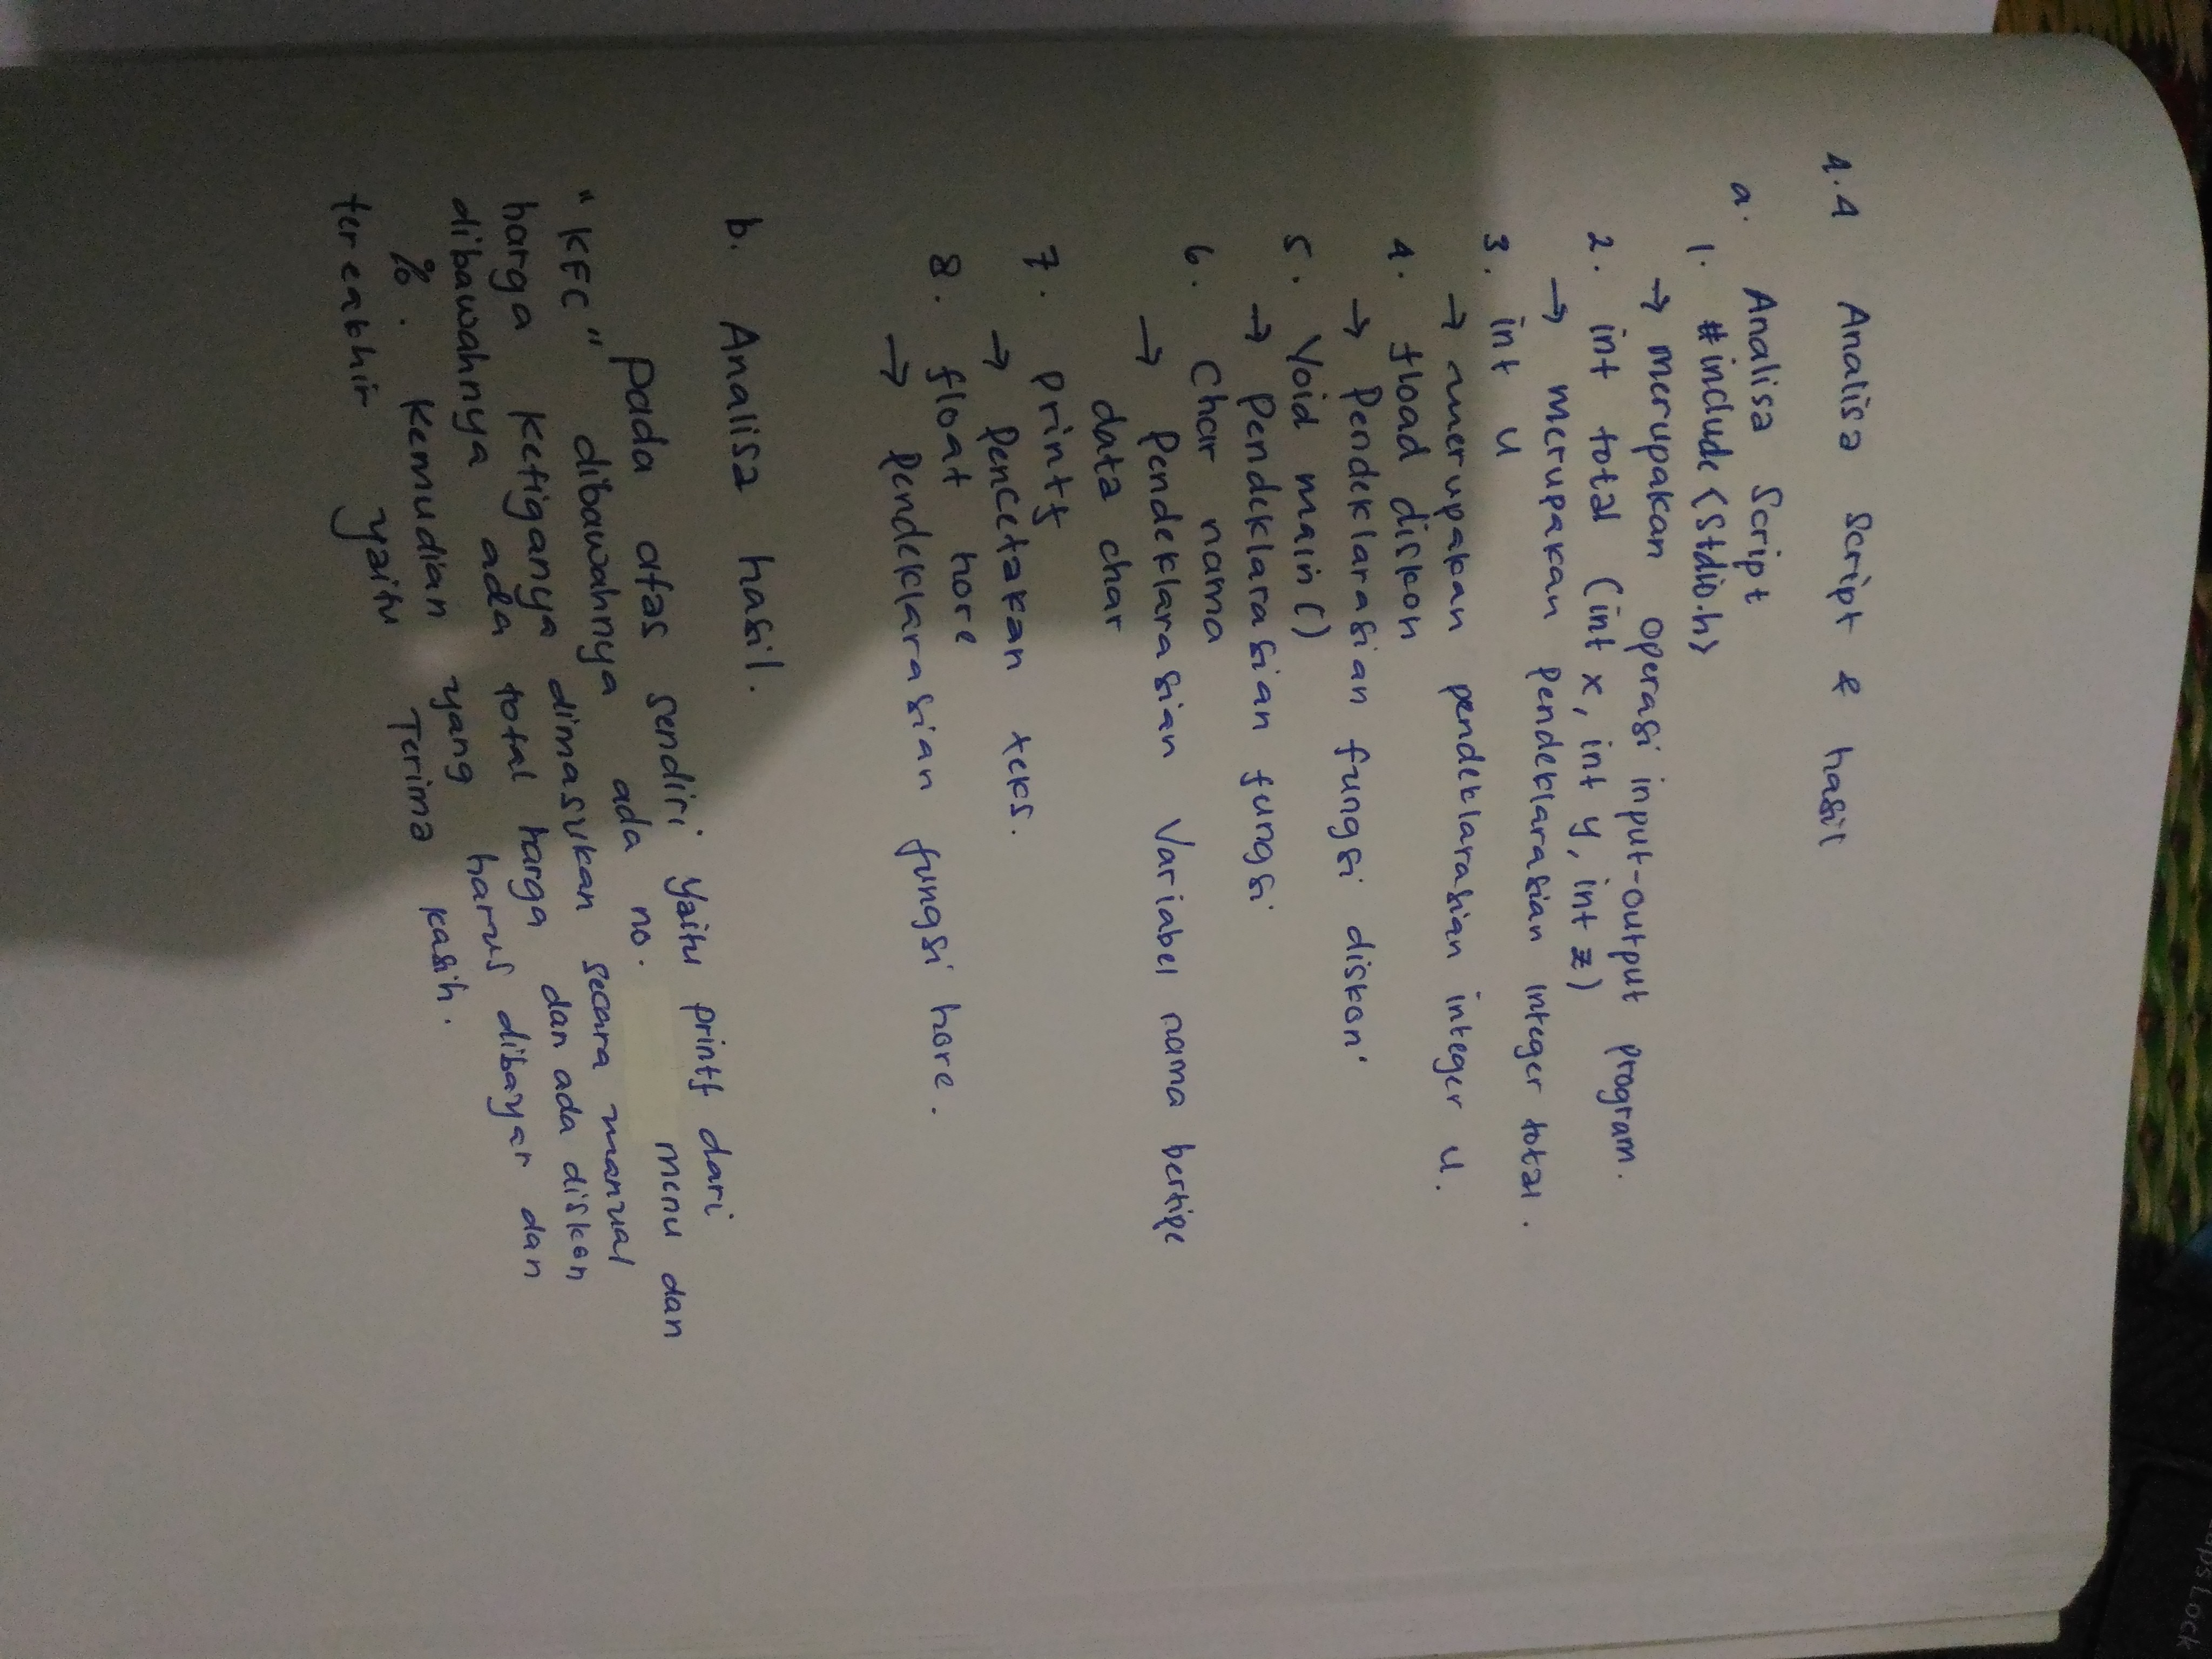 4.4 Analisa Script & hasil
a. Analisa Script
1. #include <stdio.h>
→ merupakan operasi input-output program.
2. int total (int x, int y, int z)
→ merupakan pendeklarasian integer total.
3. int u
→ merupakan pendeklarasian integer u.
4. fload diskon
→ Pendeklarasian fungsi diskon.
5. Void main()
→ Pendeklarasian fungsi
6. Char nama
→ Pendeklarasian Variabel nama bertipe
data char
7. printf
→ Pencetakan teks.
8. float hore
→ Pendeklarasian fungsi hore.
b. Analisa hasil.
Pada atas sendiri yaitu printf dari
"KFC" dibawahnya ada no. menu dan
harga ketiganya dimasukan secara manual
dibawahnya ada total harga dan ada diskon
%. Kemudian yang harus dibayar dan
tereakhir yaitu Terima kasih.
Caps Lock